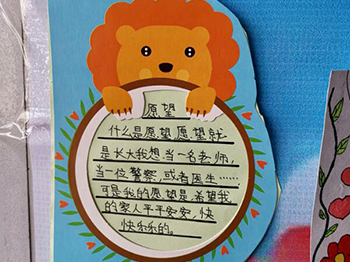 愿望
什么是愿望愿望就
是长大我想当一名老师,
当一位警察,或者医生……
可是我的愿望是希望我
的家人平平安安,快
快乐乐的。